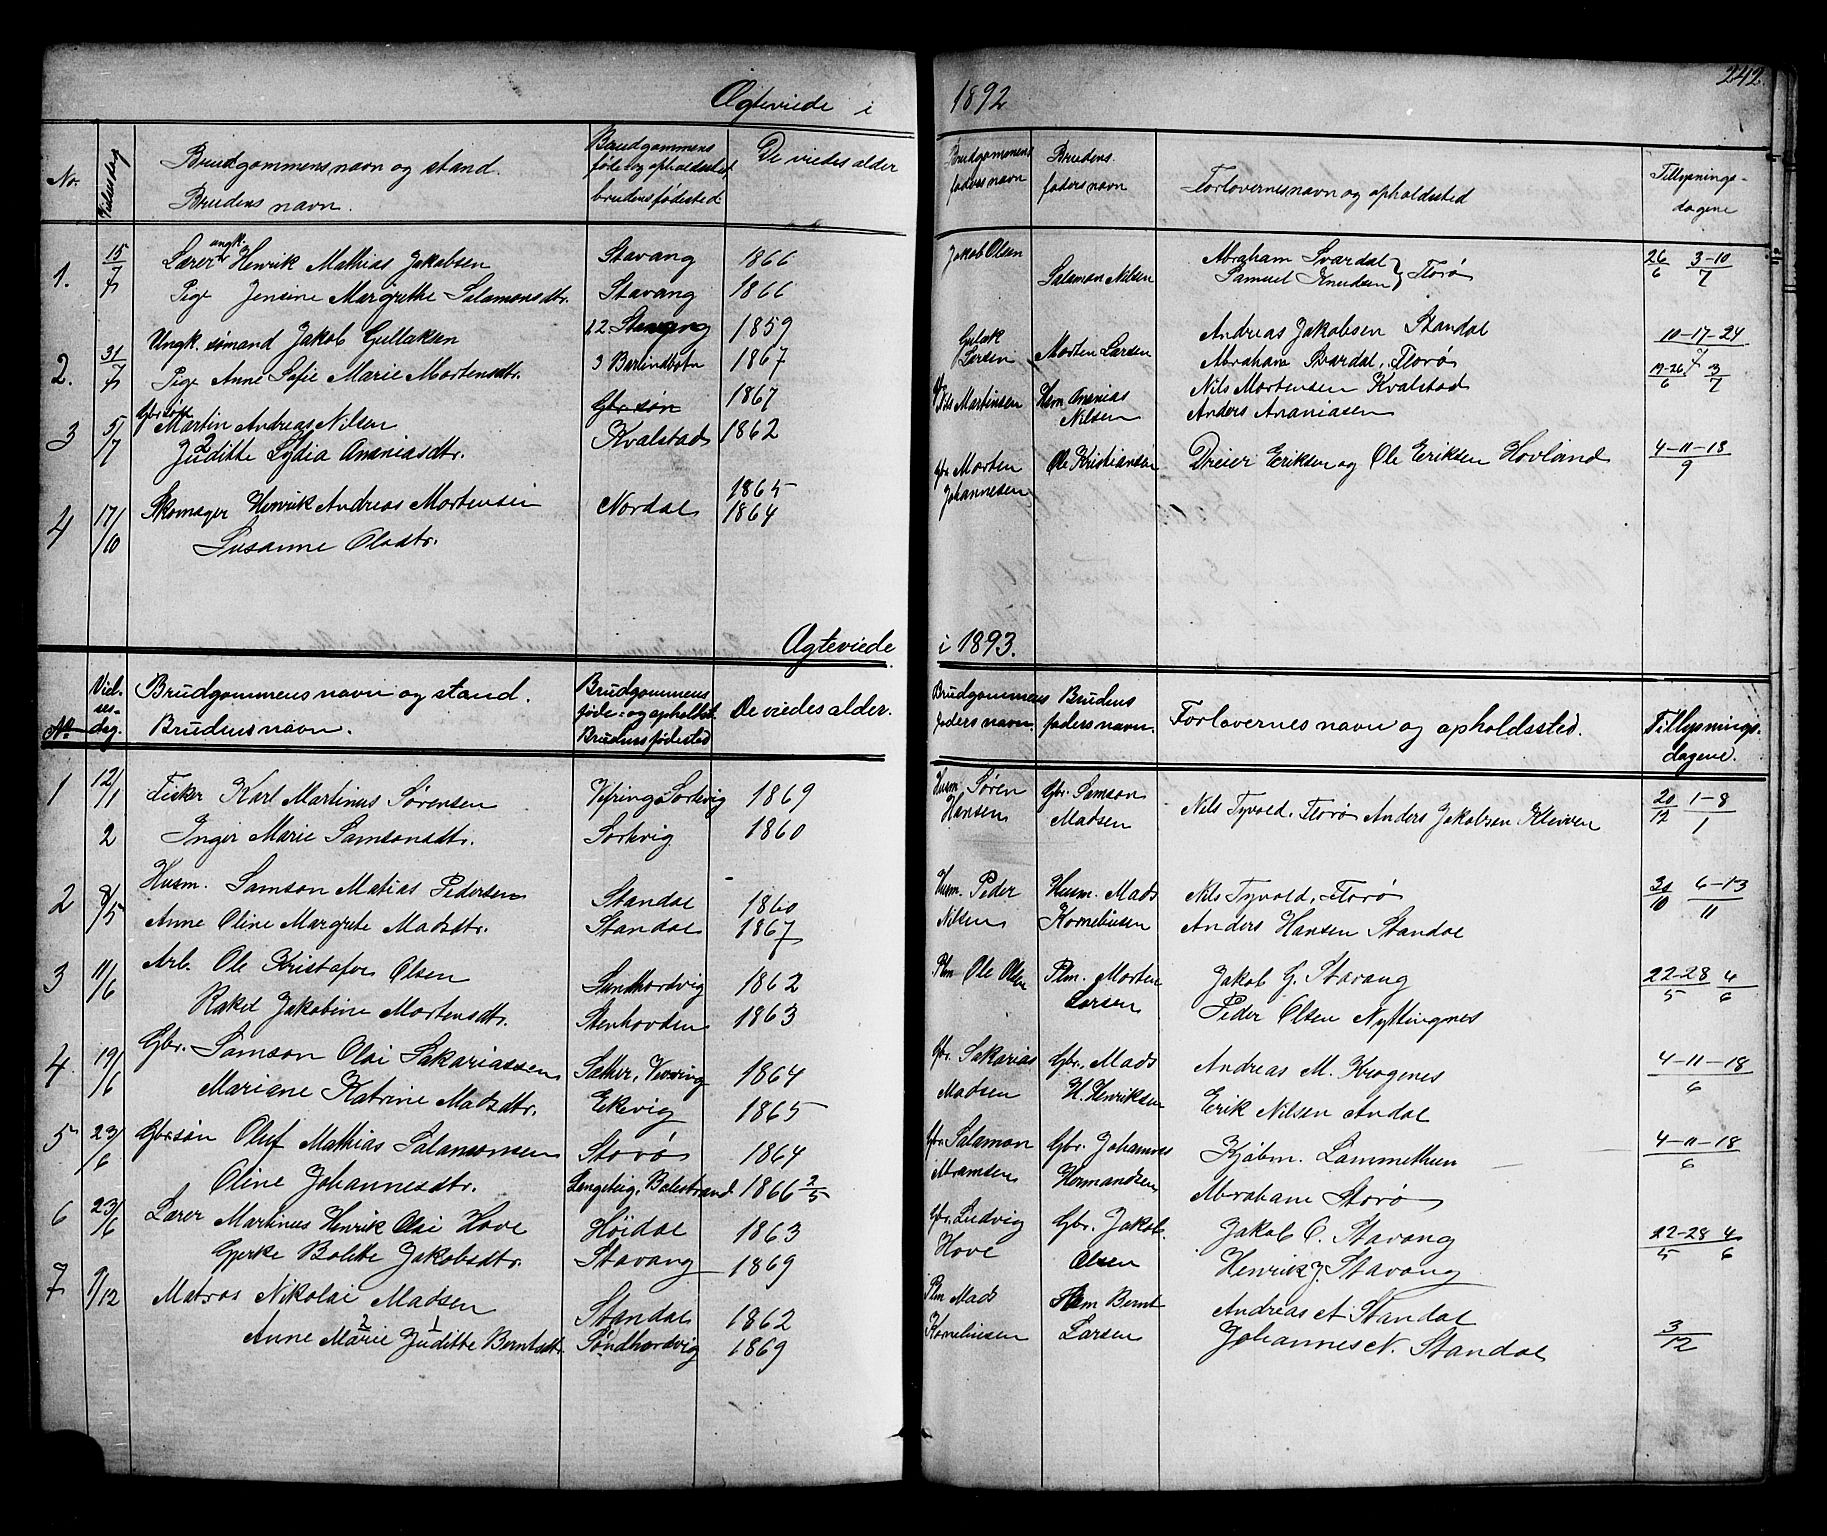 242.
Ægteviede i 1892
No.
Vielsesdag
Brudgommens navn og stand.
Brudens navn.
Brudgommens
føde- og opholdssted
brudens fødested
De viedes alder
Brudgommens
faders navn
Brudens
faders navn
Forlovernes navn og opholdssted
Tillysnings-
dagene
1. 15/7 Lærer ungk. Henrik Mathias Jakobsen Stavang 1866 Jakob Olsen Abraham Svardal } Florø 26/6 3-10/7
Pige Jensine Margrethe Salamonsdtr. Stavang 1866 Salamon Nilsen Samuel Knudsen
2. 31/7 Ungk. sømand Jakob Gullaksen 12 Stavang 1859 Gulak Larsen Morten Larsen Andreas Jakobsen Standal 10-17-24/7
Pige Anne Sofie Marie Mortensdtr. 3 Barlindbotn 1867 Abraham Svardal, Florø
3 5/7 Gbr søn Martin Andreas Nilsen Gbr søn 1867 Nils Martinsen Husm Ananias Nilsen Nils Mortensen Kvalstad 19-26/6 3/7
2 Juditte Lydia Ananiasdtr. Kvalstad 1862 Anders Ananiasen
4 17/10 Skomager Henrik Andreas Mortensen Nordal 1865 gbr Morten Johannesen Ole Kristiansen Dreier Eriksen og Ole Eriksen Hovland 4-11-18/9
Susanne Olsdtr. 1864
Ægteviede i 1893.
No
Viel-
ses-
dag.
Brudgommens navn og stand.
Brudens navn.
Brudgommens
føde- og opholdst.
Brudens fødested
De viedes alder.
Brudgommens
faders navn.
Brudens
faders navn.
Forlovernes navn og opholdssted.
Tillysnings-
dagene.
1 12/1 Fisker Karl Martinus Sørensen Vefring, Sortevig 1869 Husm. Søren Hansen Gbr. Samson Madsen Nils Tyvold, Florø Anders Jakobsen Kleiven 20/12 1-8/1
2 Inger Marie Samsonsdtr. Sortevig 1860
2 8/5 Husm. Samson Matias Pedersen Standal 1860 Husm. Peder Nilsen Husm. Mads Korneliusen Nils Tyvold, Florø 30/10 6-13/11
Anne Oline Margrete Madsdtr. Standal 1867 Anders Hansen Standal
3 11/6 Arb. Ole Kristafor Olsen Sundhordvig 1862 Plm Ole Olsen Plm. Morten Larsen Jakob G. Stavang 22-28/5 4/6
Rakel Jakobine Mortensdtr. Stenhovden 1863 Peder Olsen Nyttingnes
4 19/6 Gbr. Samson Olai Sakariassen Sætter, Vevring 1864 Gbr. Sakarias Madsen Gbr. Mads H. Henriksen Andreas M. Krogenes 4-11-18/6
Mariane Katrine Madsdtr. Ekevig 1865 Erik Nilsen Andal
5 23/6 Gbr.søn Oluf Mathias Salamonsen Storø 1864 Gbr. Salamon Abramsen Gbr. Johannes Hermandsen Kjøbm. Lammethun 4-11-18/6
Oline Johannesdtr. Balestrand 1866 2/5 Abraham Storø
6 23/6 Lærer Martinus Henrik Olai Hove Høidal 1863 Gbr. Ludvig Hove Gbr. Jakob Olsen Jakob O. Stavang 22-28/5 4/6
Gjerke Bolette Jakobsdtr. Stavang 1869 Henrik J. Stavang
7 9/12 Matros Nikolai Madsen Standal 1862 Plm Mads Korneliusen Plm Bernt Larsen Andreas A. Standal 3/12
Anne 2 Marie 1 Juditte Berntsdtr. Søndhordvig 1869 Johannes N. Standal